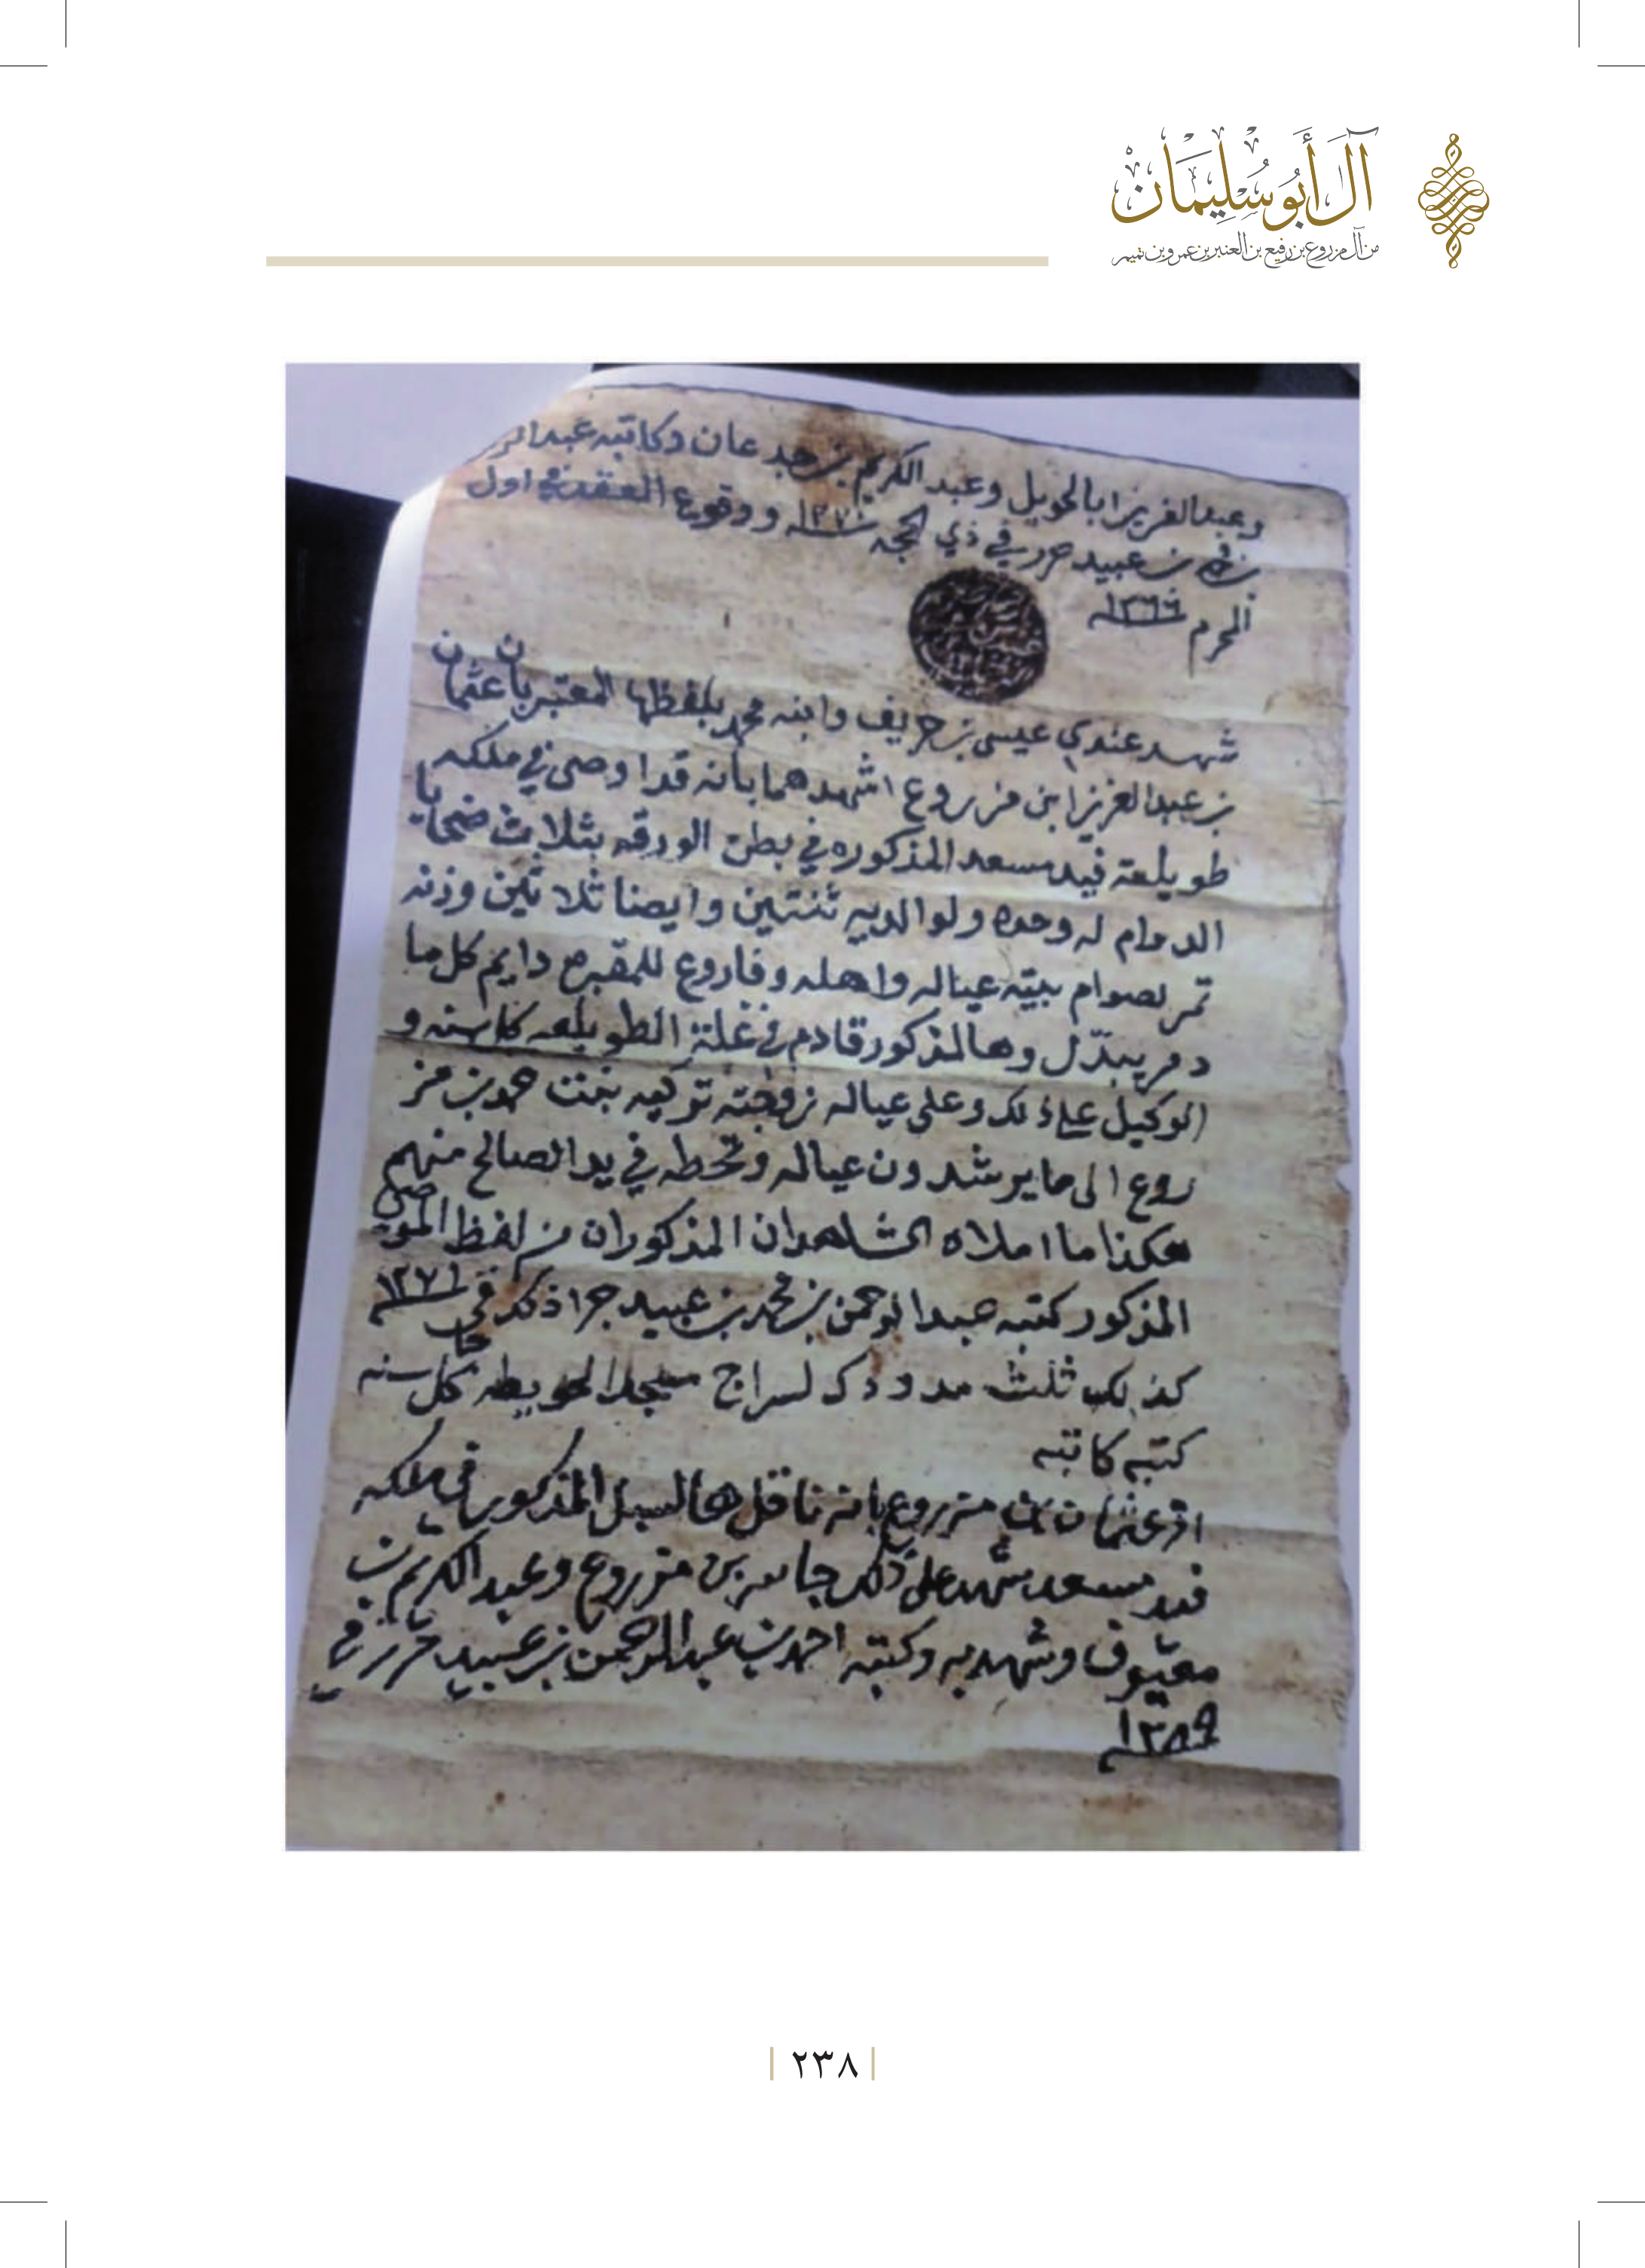 آل أبو سليمان
من آل مزروع بن رفيع بن العنبر بن عمرو بن تميم
وعبدالعزيز ابالحويل وعبد الكريم بن جدعان وكاتبه عبدالر
بن عبيد حرر في ذي الحجه ١٢٧٠ ووقوع العقد في اول
المحرم ١٢٦٦
شهد عندي عيسى بن حريف وابنه محمد بلفظها المعتبر بان عثمان
بن عبدالعزيز ابن مزروع اشهدهما بانه قد اوصى في ملكه
طويلعة فيد مسعد المذكوره في بطن الورقه بثلاث ضحايا
الدوام له وحده ولوالديه ثنتين وايضا ثلاثين وزنه
تمر لصوام بيته عياله واهله وفاروع للمقبره دايم كل ما
دمر يبدل وهالمذكور قادم في غلة الطويلعه كل سنه و
الوكيل على ذلك وعلى عياله زوجته تركيه بنت حمد بن مز
روع الى ما يرشدون عياله وتحطه في يد الصالح منهم
هكذا ما املاه الشاهدان المذكوران من لفظ الموصي
المذكور كتبه عبدالرحمن بن محمد بن عبيد جرا ذلك في ١٢٧١
كذلك ثلث مد ودك لسراج مسجد الحويطه كل سنه
كتبه كاتبه
اقر عثمان بن مزروع بانه ناقل هالسبل المذكور في ملكه
فيد مسعد شهد على ذلك جاسر بن مزروع وعبد الكريم بن
معيوف وشهد به وكتبه احمد بن عبدالرحمن بن عبيد حرر في
١٢٨٩
٢٣٨